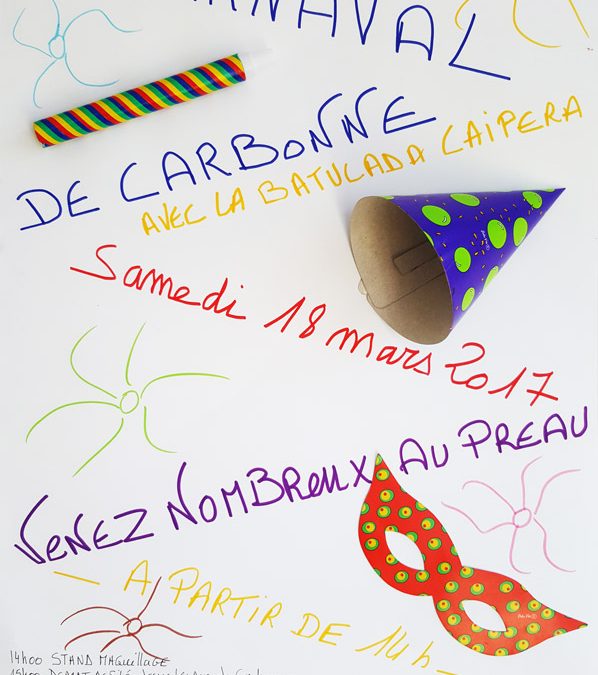 CARNAVAL
DE CARBONNE
AVEC LA BATULADA CAIPERA
Samedi 18 mars 2017
VENEZ NOMBREUX AU PREAU
— A PARTIR DE 14h —
14h00 STAND MAQUILLAGE